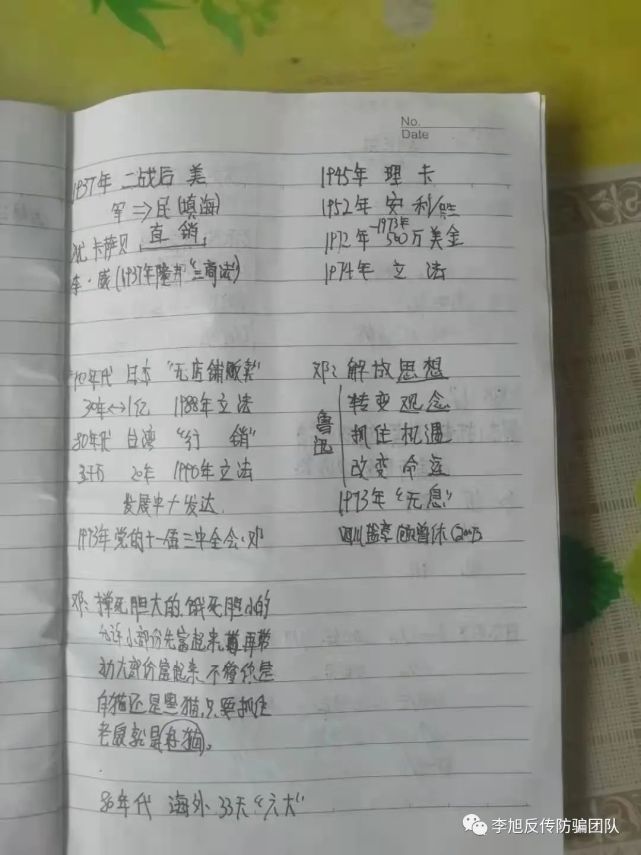 No.
Date
1937年 二战后 美
军⇒民(填海)
尤 卡萨贝, 直销,
李·威(1937年隆邦"三商法")
1945年 理 卡
1952年 安利/
-1973年
1972年 500万美金
1974年 立法
70年代 日本 "无店铺贩卖"
30年↔1亿 1988年立法
80年代 台湾 "行 销"
3千万 20年 1990年立法
发展中 发达
1973年党的十一届三中全会:邓
邓: 解放思想
鲁迅
转变 观念
抓住 机遇
改变 命运
1973年 "无息"
四川
邓: 撑死胆大的, 饿死胆小的
允许小部份先富起来, 再带
动大部份富起来, 不管你是
白猫还是黑猫, 只要抓住
老鼠就是好猫。
80年代 海外 33天"六大"
李旭反传防骗团队